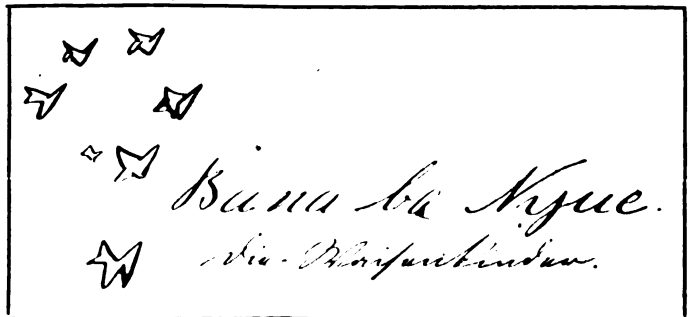 Bana ba Nyue.
die Waisenkinder.